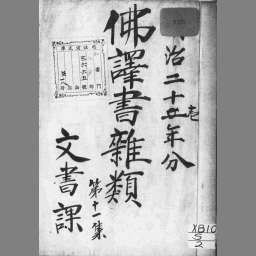 治二十五年分
壱
佛譯書雜類
第十一集
文書課
XB10
S
2